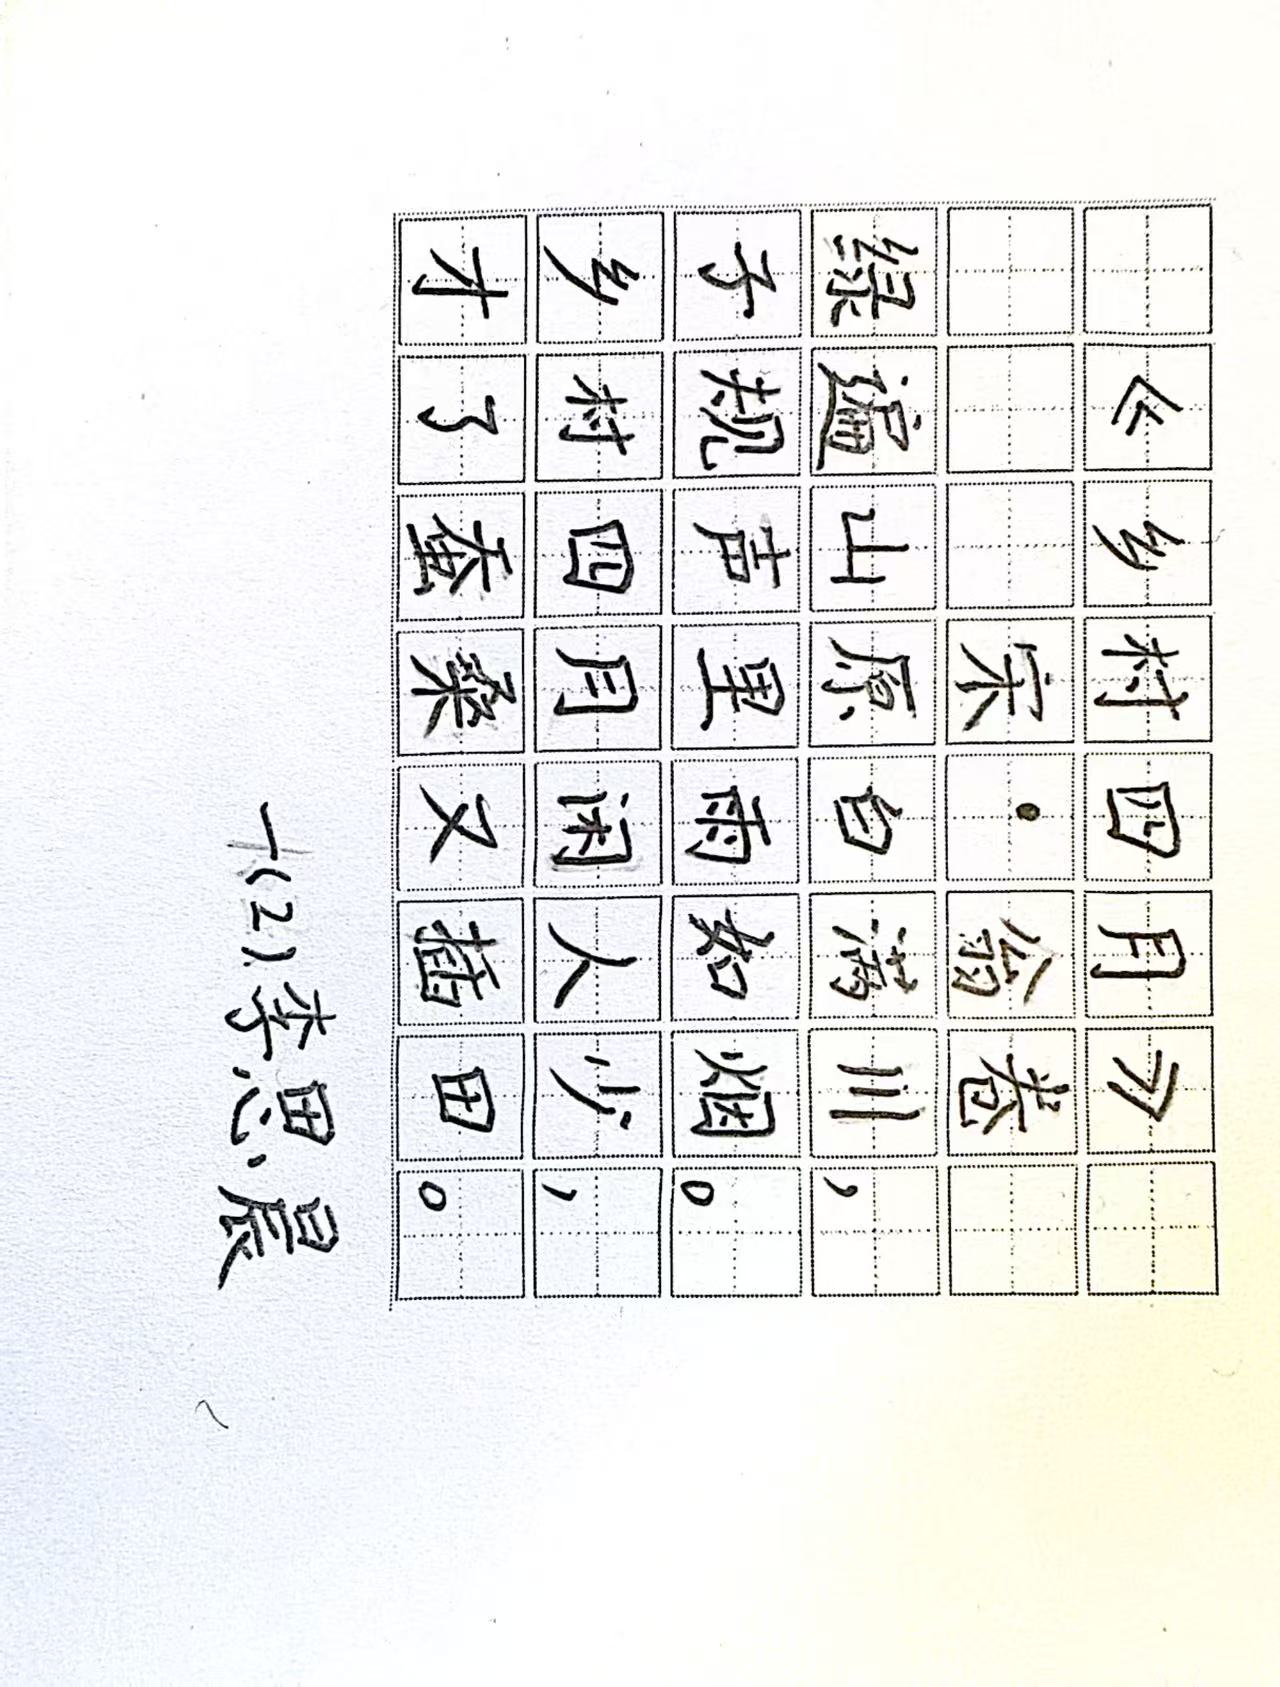 《乡村四月》
宋·翁卷
绿遍山原白满川，
子规声里雨如烟。
乡村四月闲人少，
才了蚕桑又插田。
一(2)李思晨